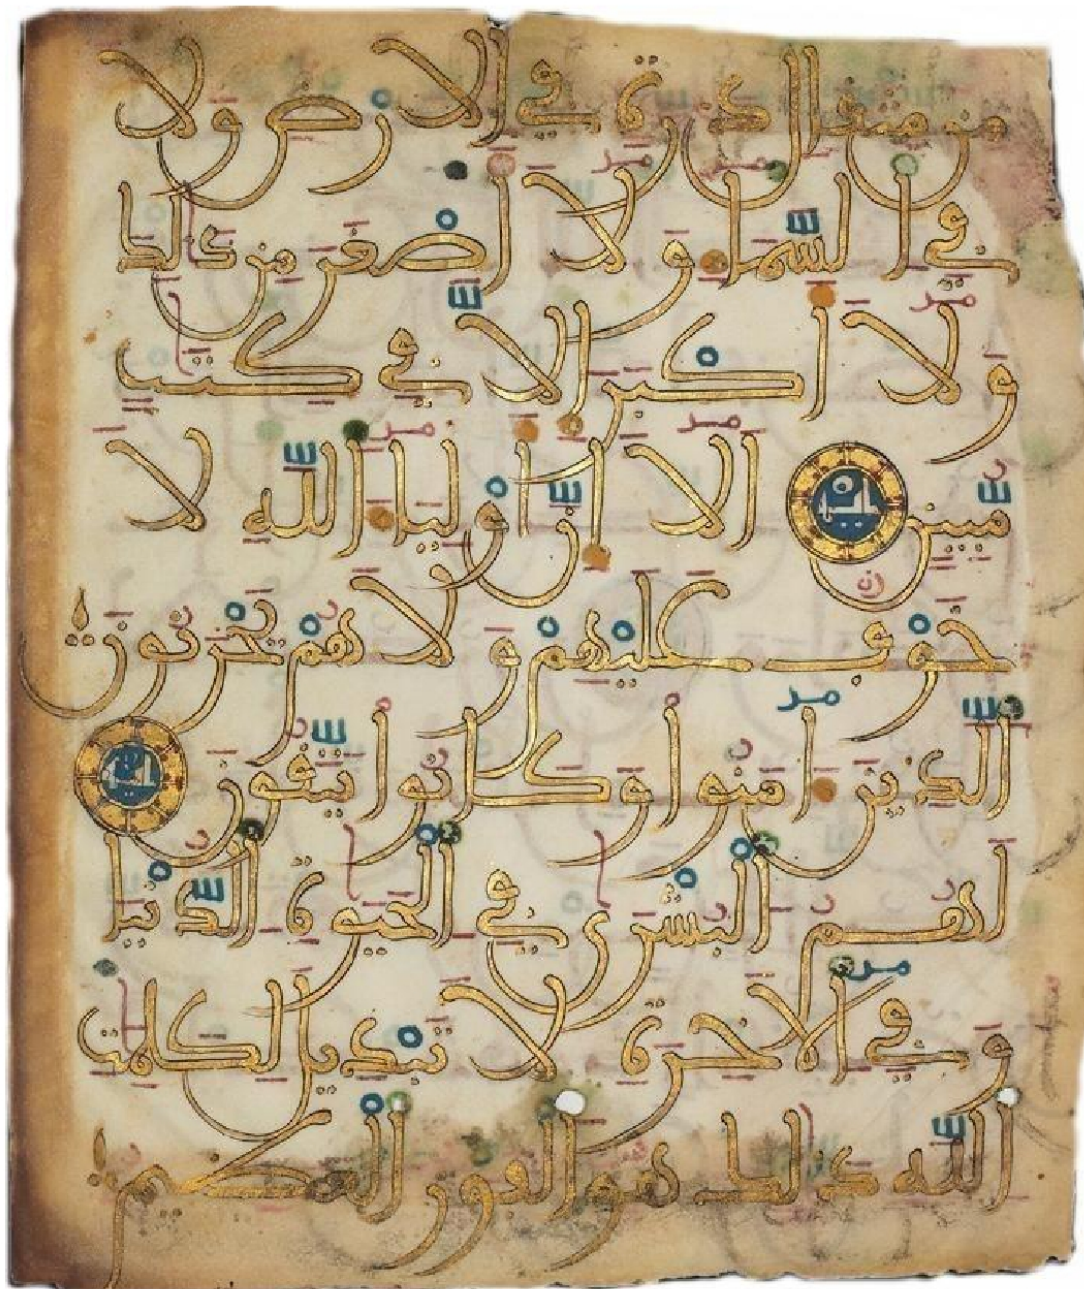 من مثقال ذرة في الارض ولا
في السما ولا اصغر من ذلك
ولا اكبر الا في كتب
مبين الا ان اوليا الله لا
خوف عليهم ولا هم يحزنون
الذين امنوا وكانوا يتقون
لهم البشرى في الحيوة الدنيا
وفي الاخرة لا تبديل لكلمت
الله ذلك هو الفوز العظيم